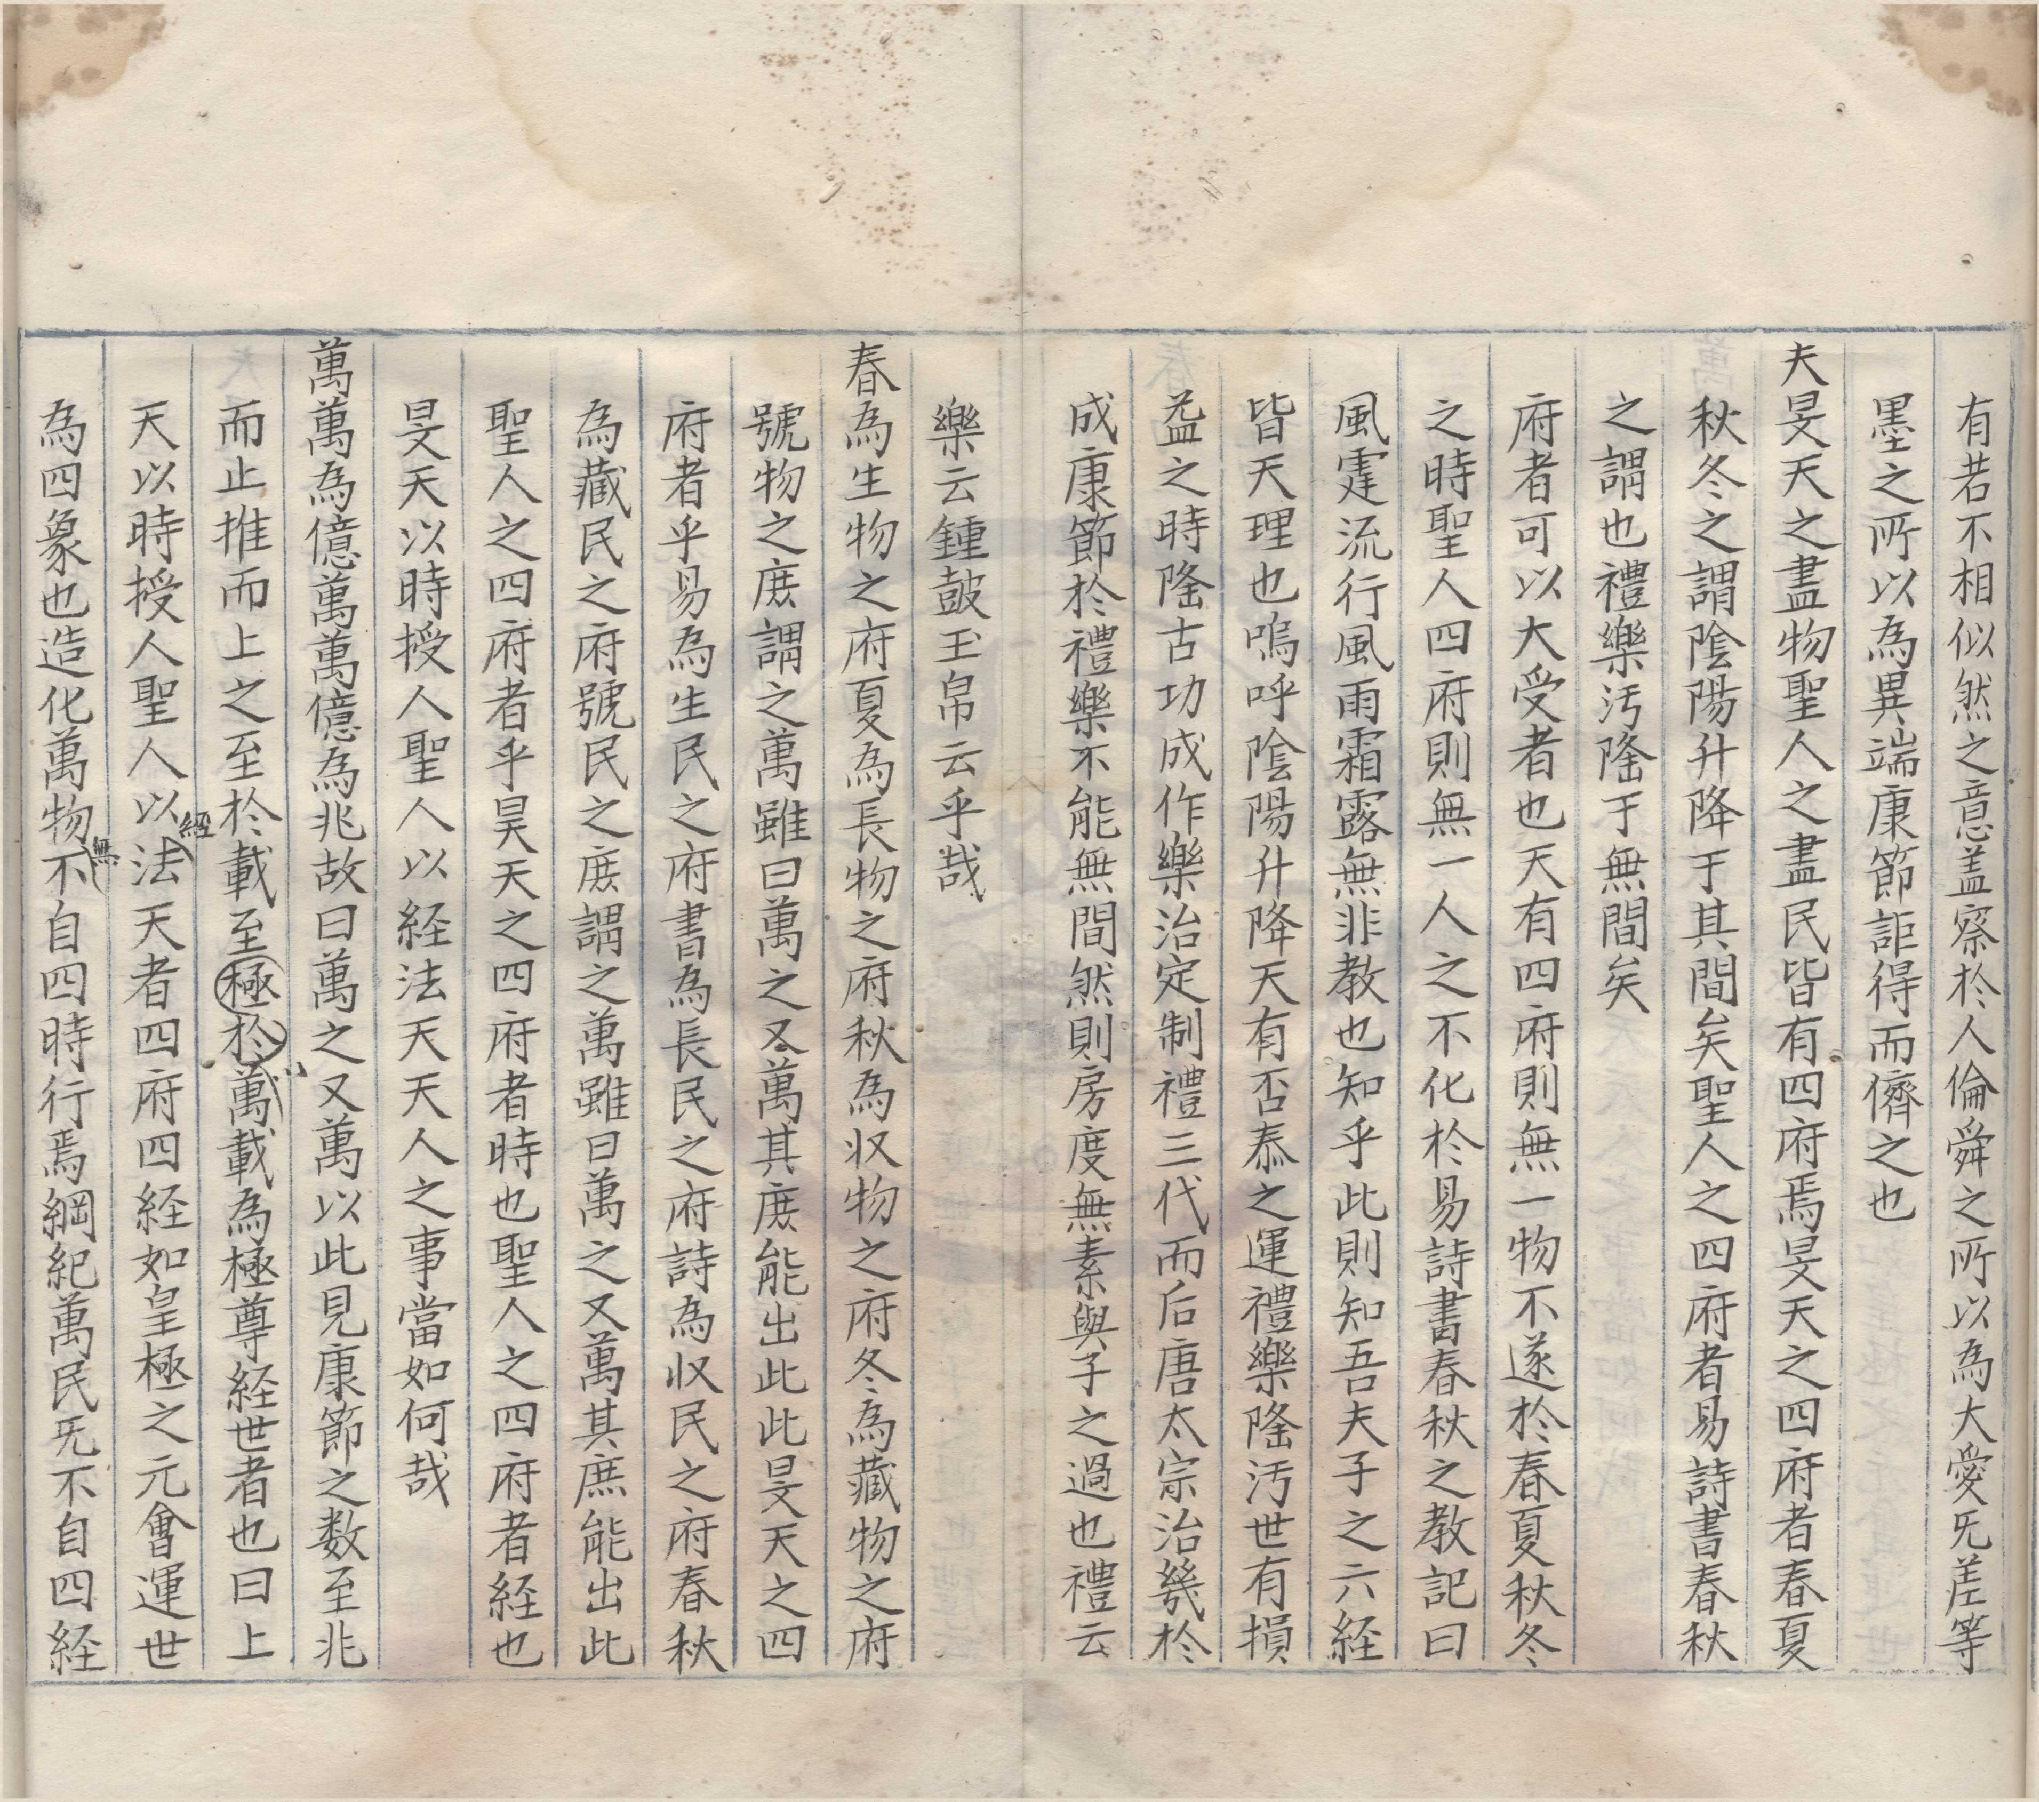 有若不相似然之意盖察於人倫舜之所以為大愛旡差等
墨之所以為異端康節詎得而儕之也
夫旻天之盡物聖人之盡民皆有四府焉旻天之四府者春夏
秋冬之謂陰陽升降于其間矣聖人之四府者易詩書春秋
之謂也禮樂汚隆于無間矣
府者可以大受者也天有四府則無一物不遂於春夏秋冬
之時聖人四府則無一人之不化於易詩書春秋之教記曰
風霆流行風雨霜露無非教也知乎此則知吾夫子之六経
皆天理也嗚呼陰陽升降天有否泰之運禮樂隆汚世有損
益之時隆古功成作樂治定制禮三代而后唐太宗治幾於
成康節於禮樂不能無間然則房度無素與子之過也禮云
樂云鍾鼓玉帛云乎哉
春為生物之府夏為長物之府秋為収物之府冬為藏物之府
號物之庶謂之萬雖曰萬之又萬其庶能出此此旻天之四
府者乎易為生民之府書為長民之府詩為収民之府春秋
為藏民之府號民之庶謂之萬雖曰萬之又萬其庶能出此
聖人之四府者乎昊天之四府者時也聖人之四府者経也
旻天以時授人聖人以経法天天人之事當如何哉
萬萬為億萬萬億為兆故曰萬之又萬以此見康節之数至兆
而止推而上之至於載至極於萬載為極尊経世者也曰上
天以時授人聖人以經法天者四府四経如皇極之元會運世
為四象也造化萬物不無自四時行焉綱紀萬民旡不自四経